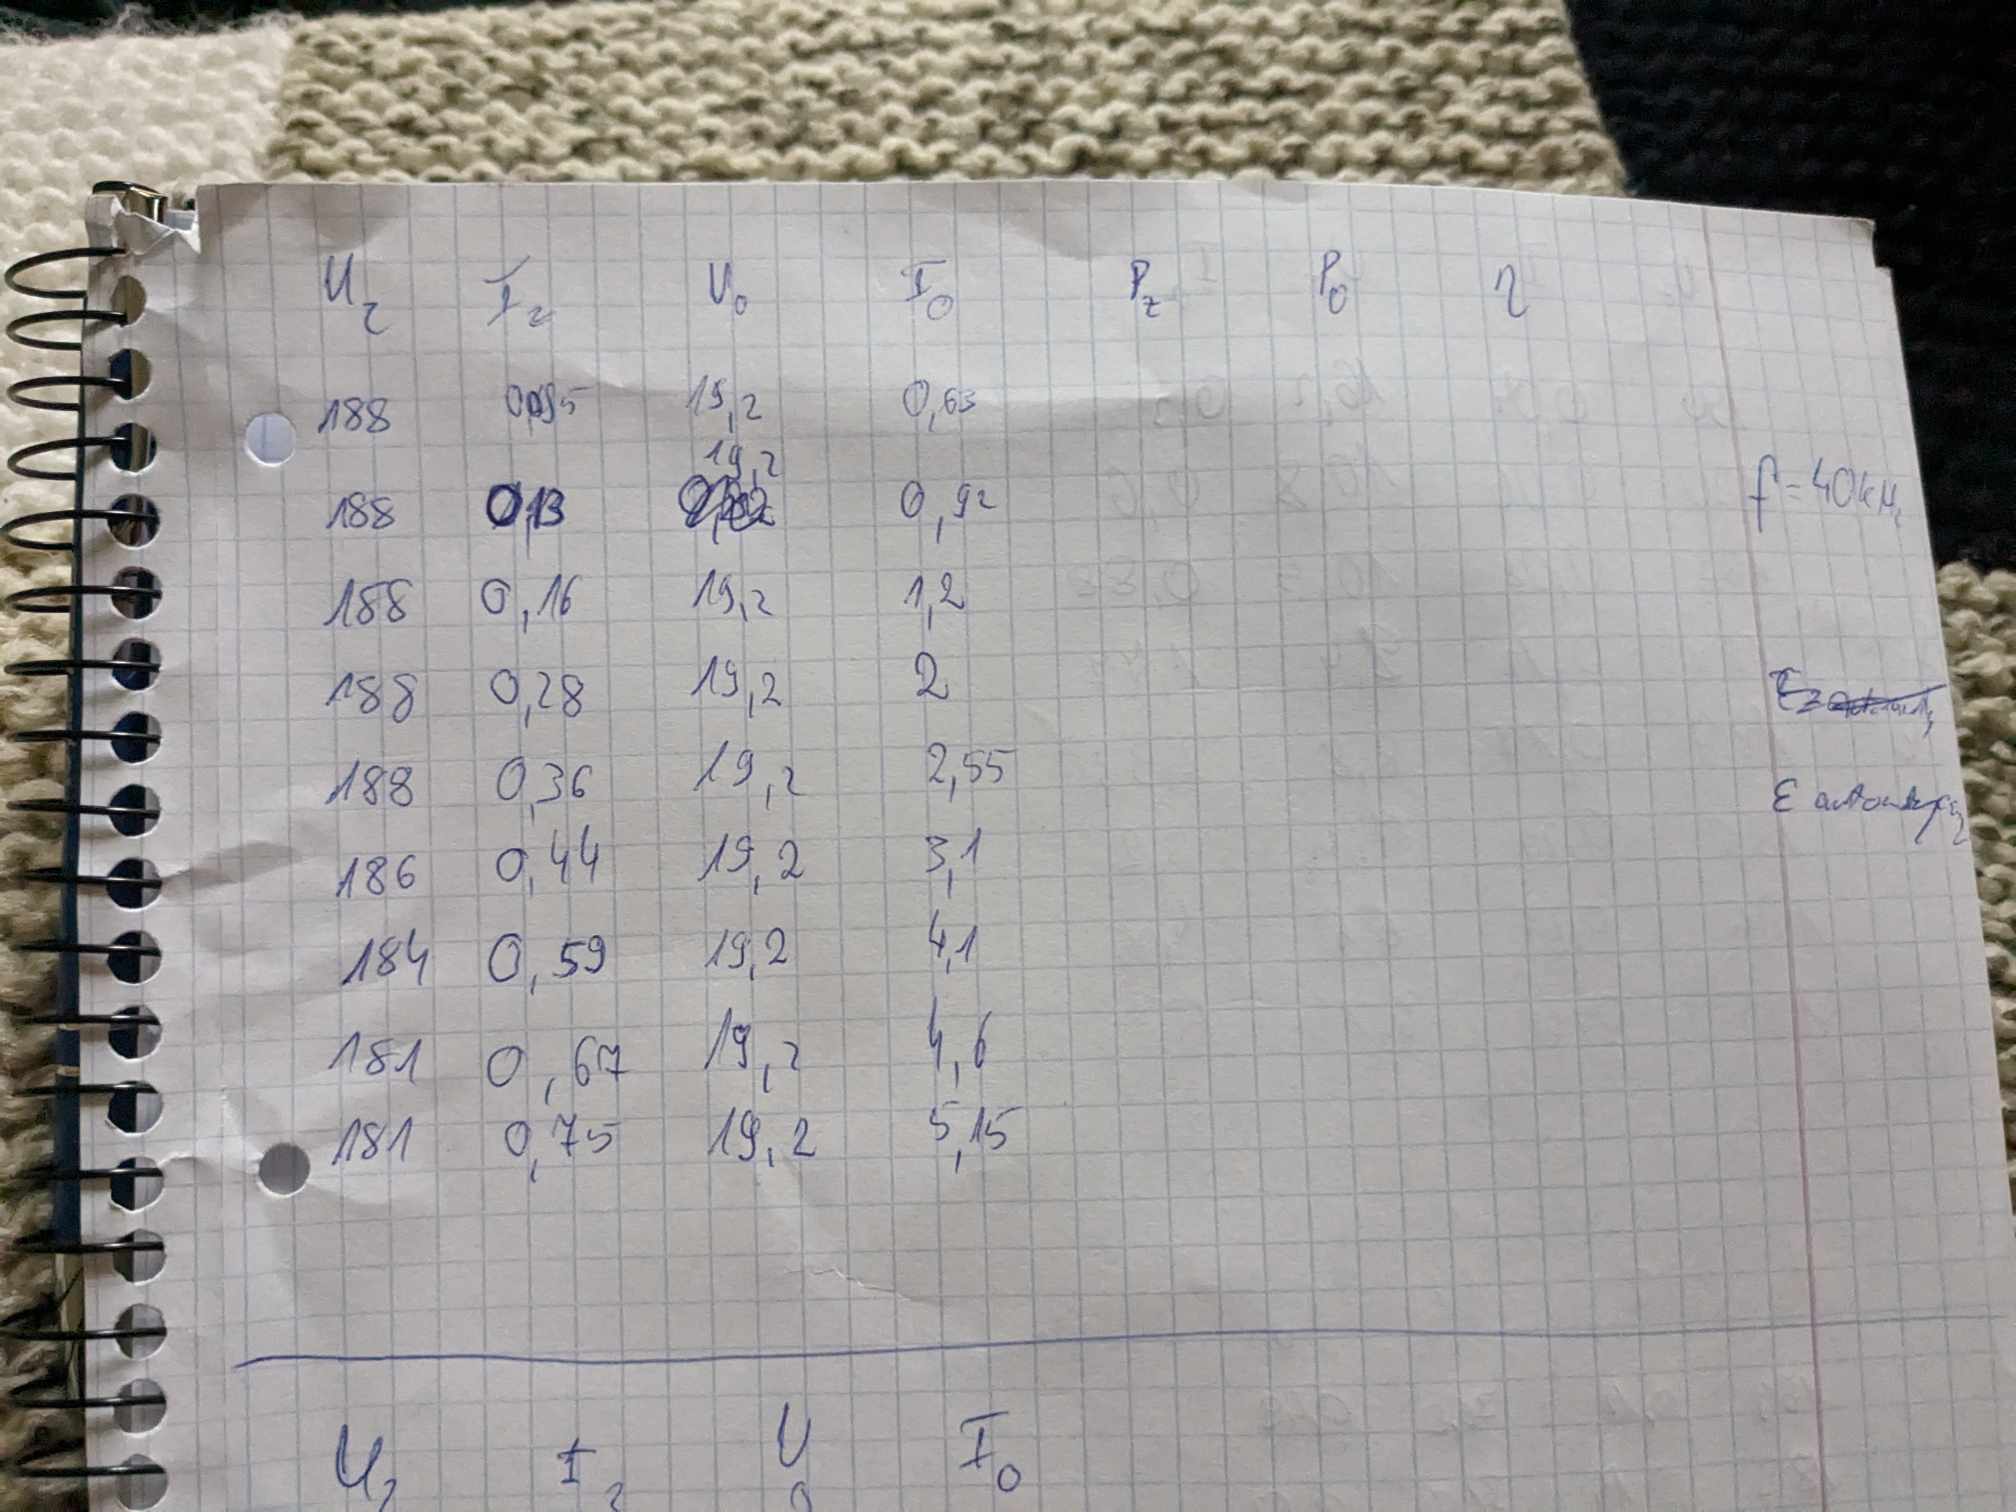 U_z I_z U_0 I_0 P_z P_0 η
188 0,095 19,2 0,63
19,2
188 0,13 0,92
f = 40kHz
188 0,16 19,2 1,2
188 0,28 19,2 2
188 0,36 19,2 2,55
186 0,44 19,2 3,1
184 0,59 19,2 4,1
181 0,67 19,2 4,6
181 0,75 19,2 5,15
U_z I_z U_0 I_0